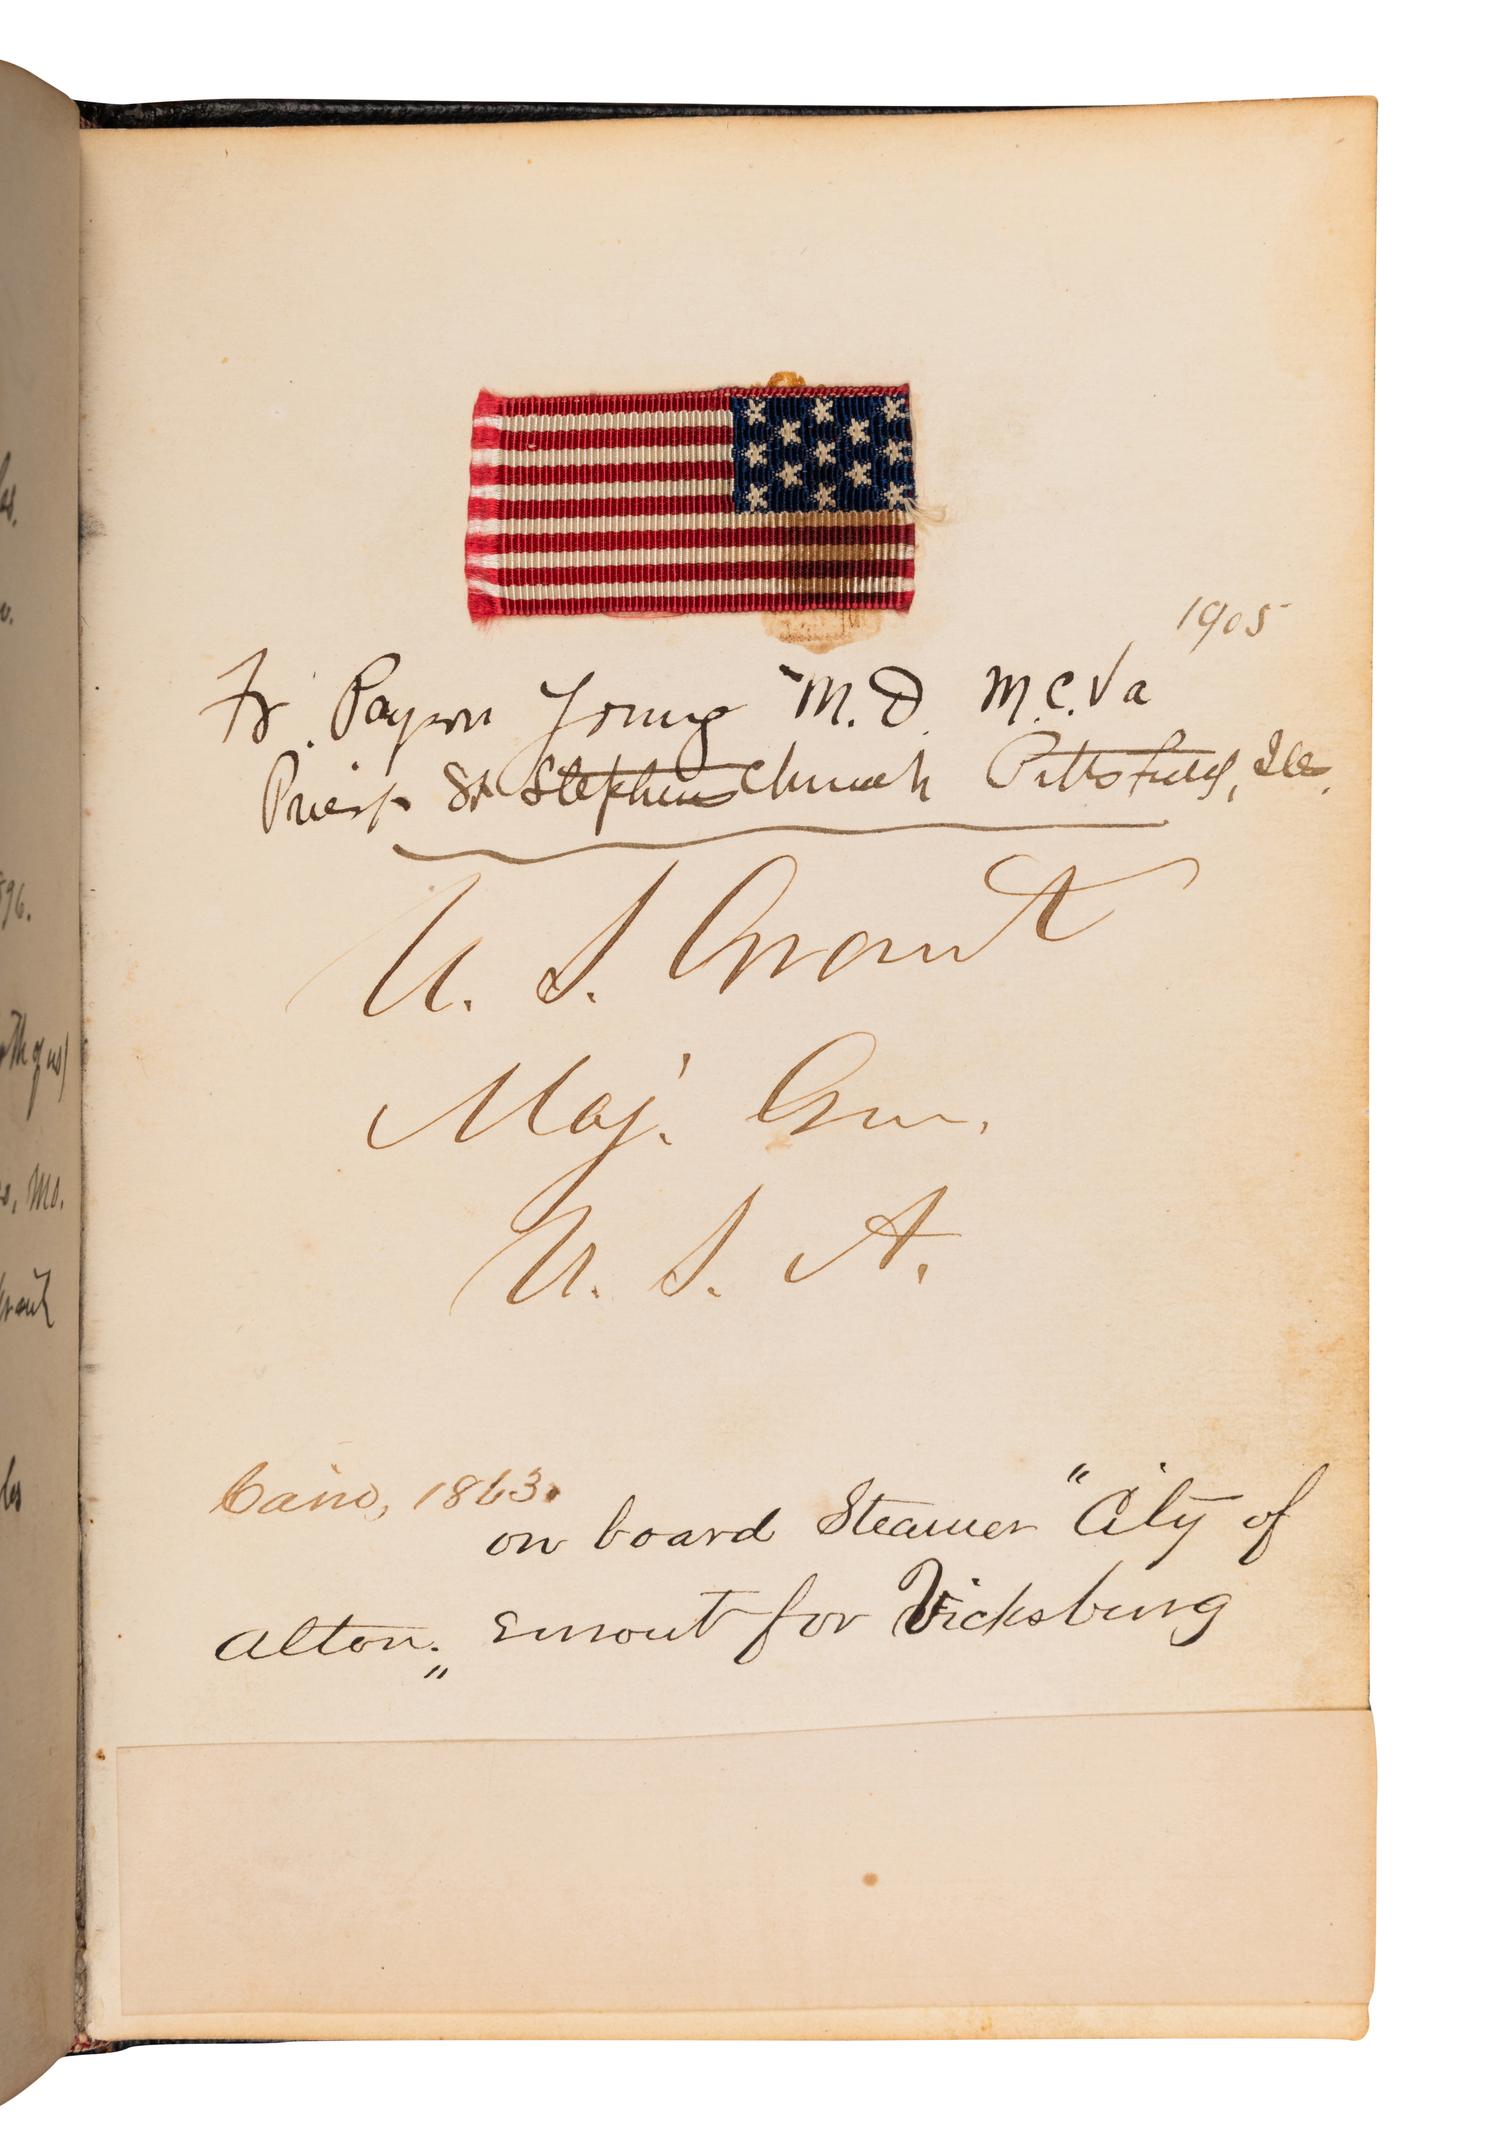 1905
Fr. Payson Young M.D. M.C.Va
Priest St Stephens Church Pittsfield, Ills.
U. S. Grant
Maj. Gen.
U. S. A.
Cairo, 1863.
on board Steamer "City of
Alton." enrout for Vicksburg
896.
Mo.